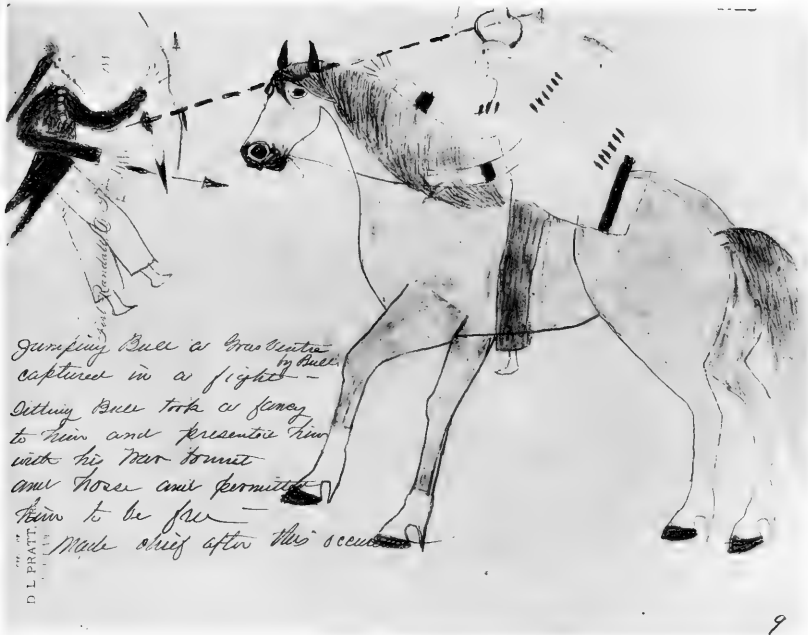 Jumping Bull a Gros Ventre
captured in a fight by Bull. —
Sitting Bull took a fancy
to him and presented him
with his War bonnet
and horse and permitted
him to be free —
Made chief after this occu
D L PRATT.
9